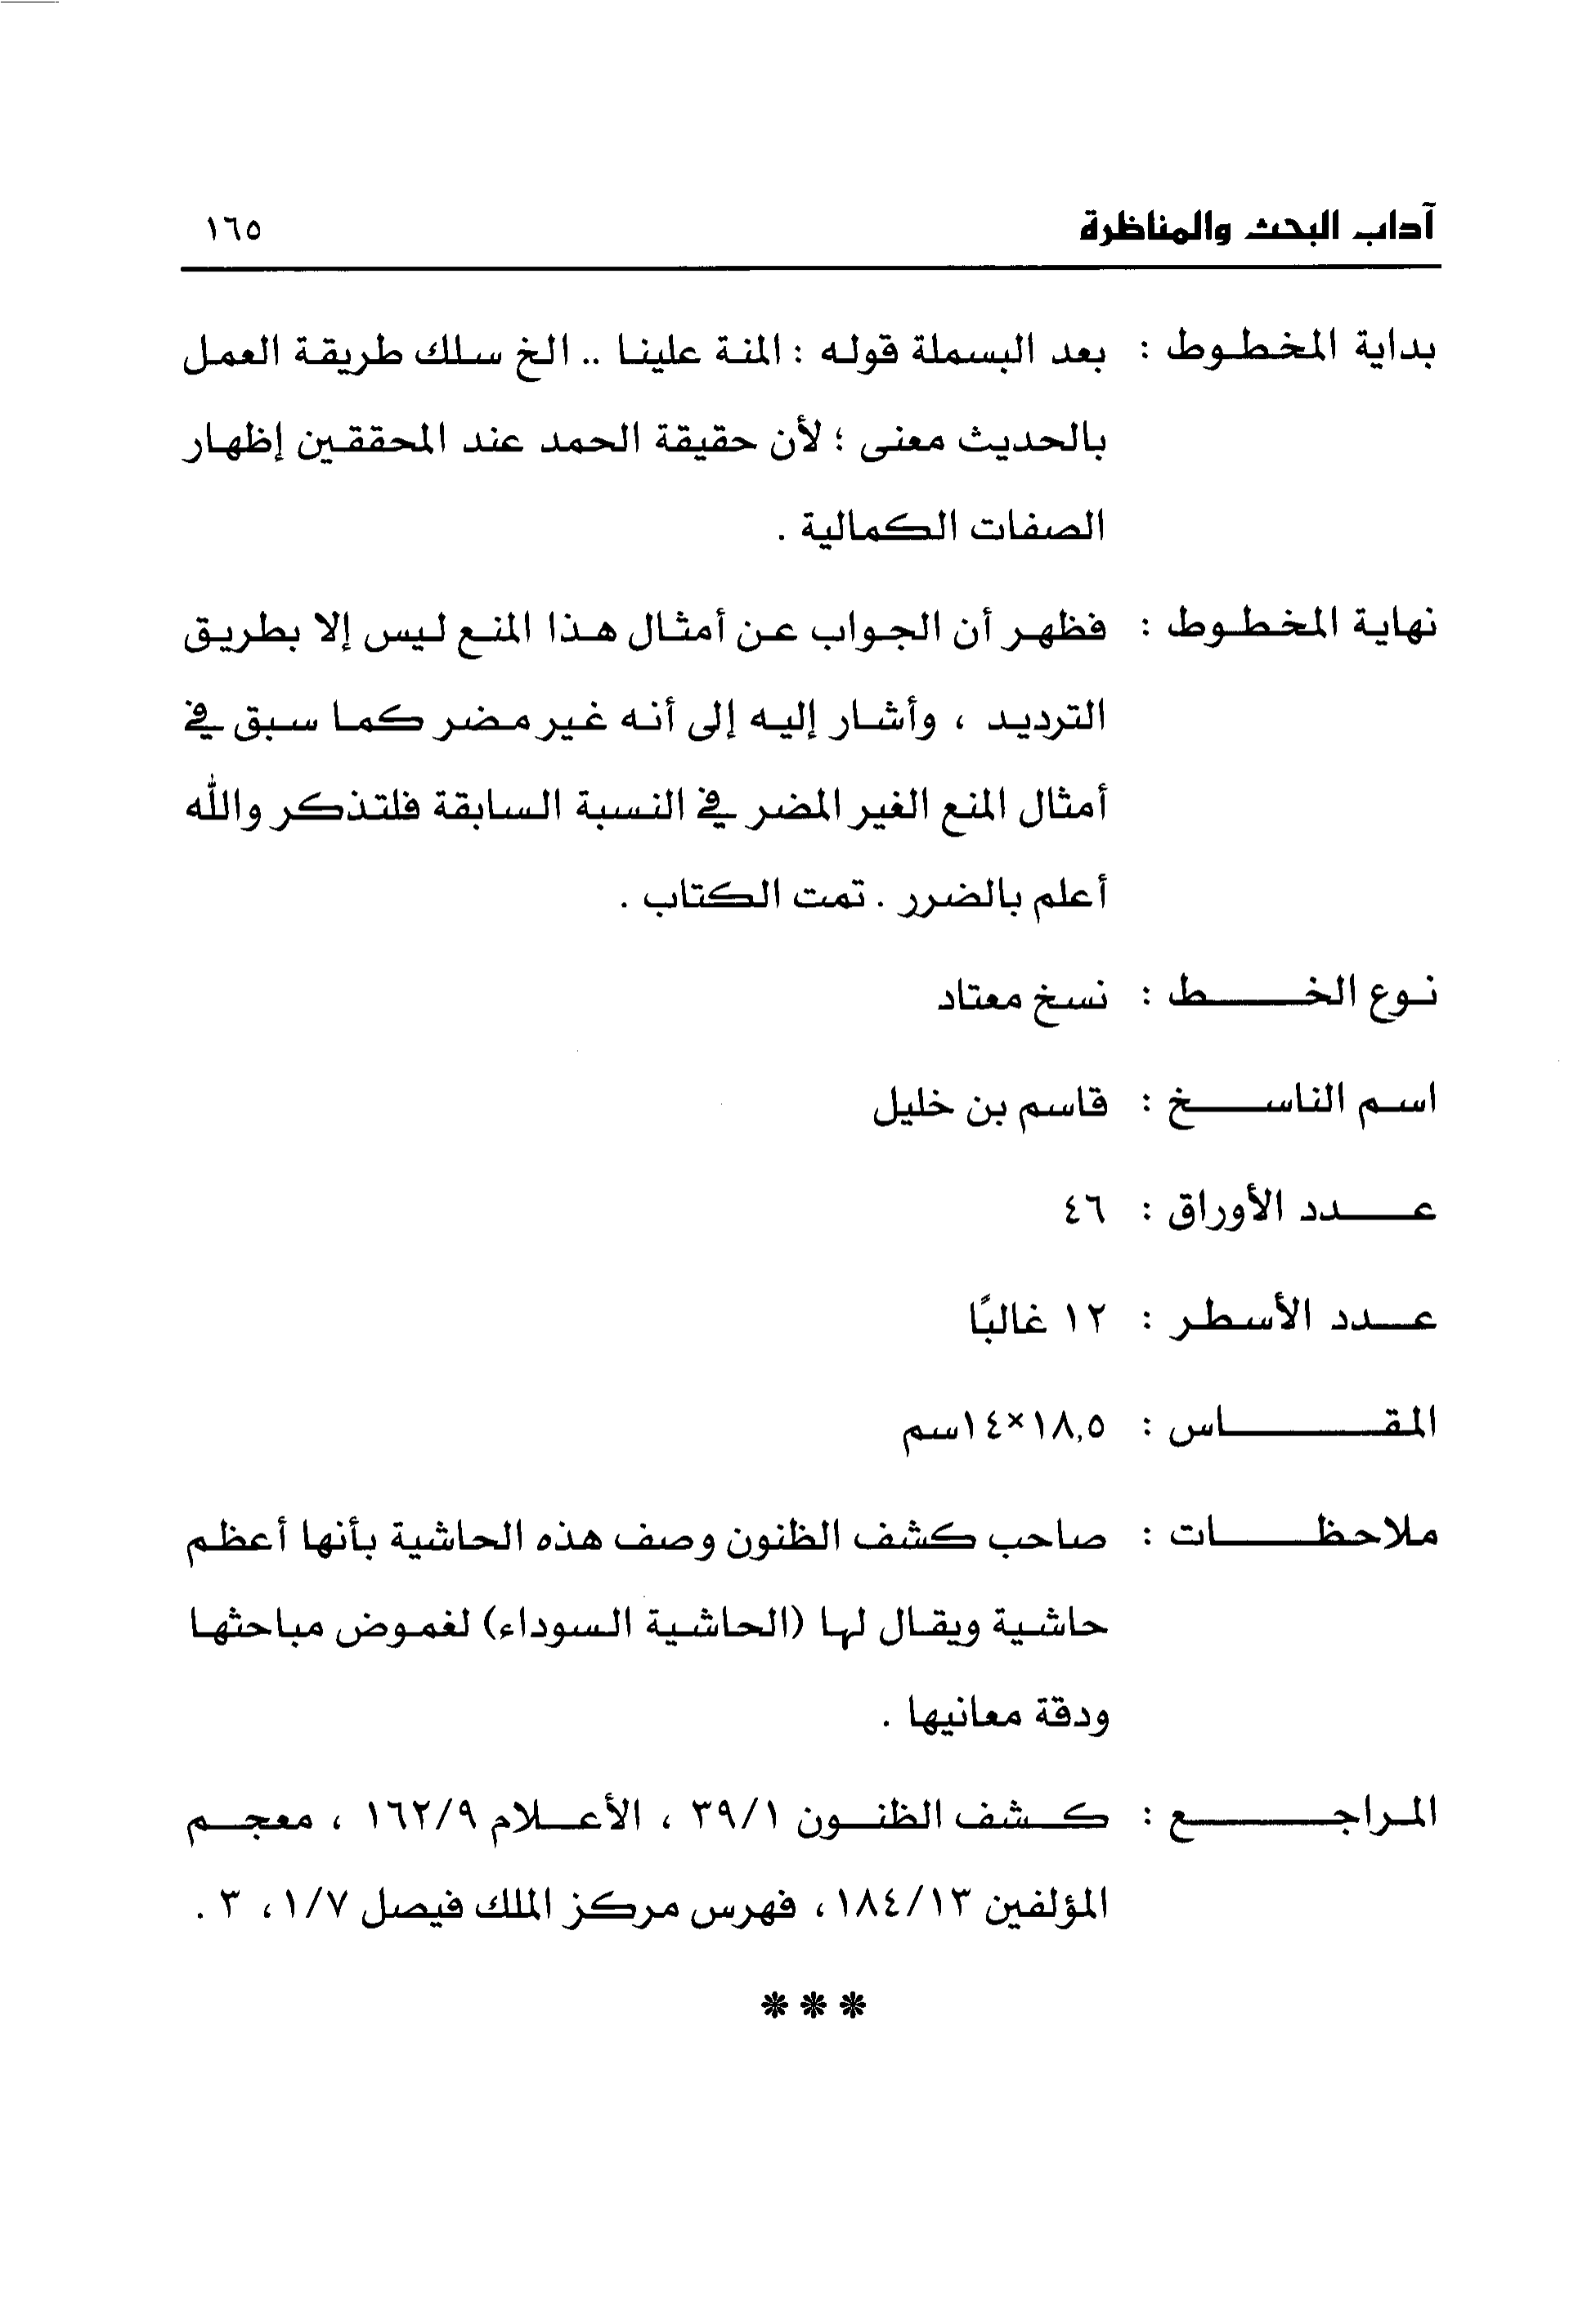 آداب البحث والمناظرة ١٦٥
بداية المخطوط : بعد البسملة قوله : المنة علينا .. الخ سلك طريقة العمل
بالحديث معنى ؛ لأن حقيقة الحمد عند المحققين إظهار
الصفات الكمالية .
نهاية المخطوط : فظهر أن الجواب عن أمثال هذا المنع ليس إلا بطريق
الترديد ، وأشار إليه إلى أنه غير مضر كما سبق في
أمثال المنع الغير المضر في النسبة السابقة فلتذكر والله
أعلم بالضرر . تمت الكتاب .
نوع الخط : نسخ معتاد
اسم الناسخ : قاسم بن خليل
عدد الأوراق : ٤٦
عدد الأسطر : ١٢ غالبًا
المقاس : ١٨,٥×١٤سم
ملاحظات : صاحب كشف الظنون وصف هذه الحاشية بأنها أعظم
حاشية ويقال لها (الحاشية السوداء) لغموض مباحثها
ودقة معانيها .
المراجع : كشف الظنون ٣٩/١ ، الأعلام ١٦٢/٩ ، معجم
المؤلفين ١٨٤/١٣ ، فهرس مركز الملك فيصل ١/٧ ، ٣ .
***